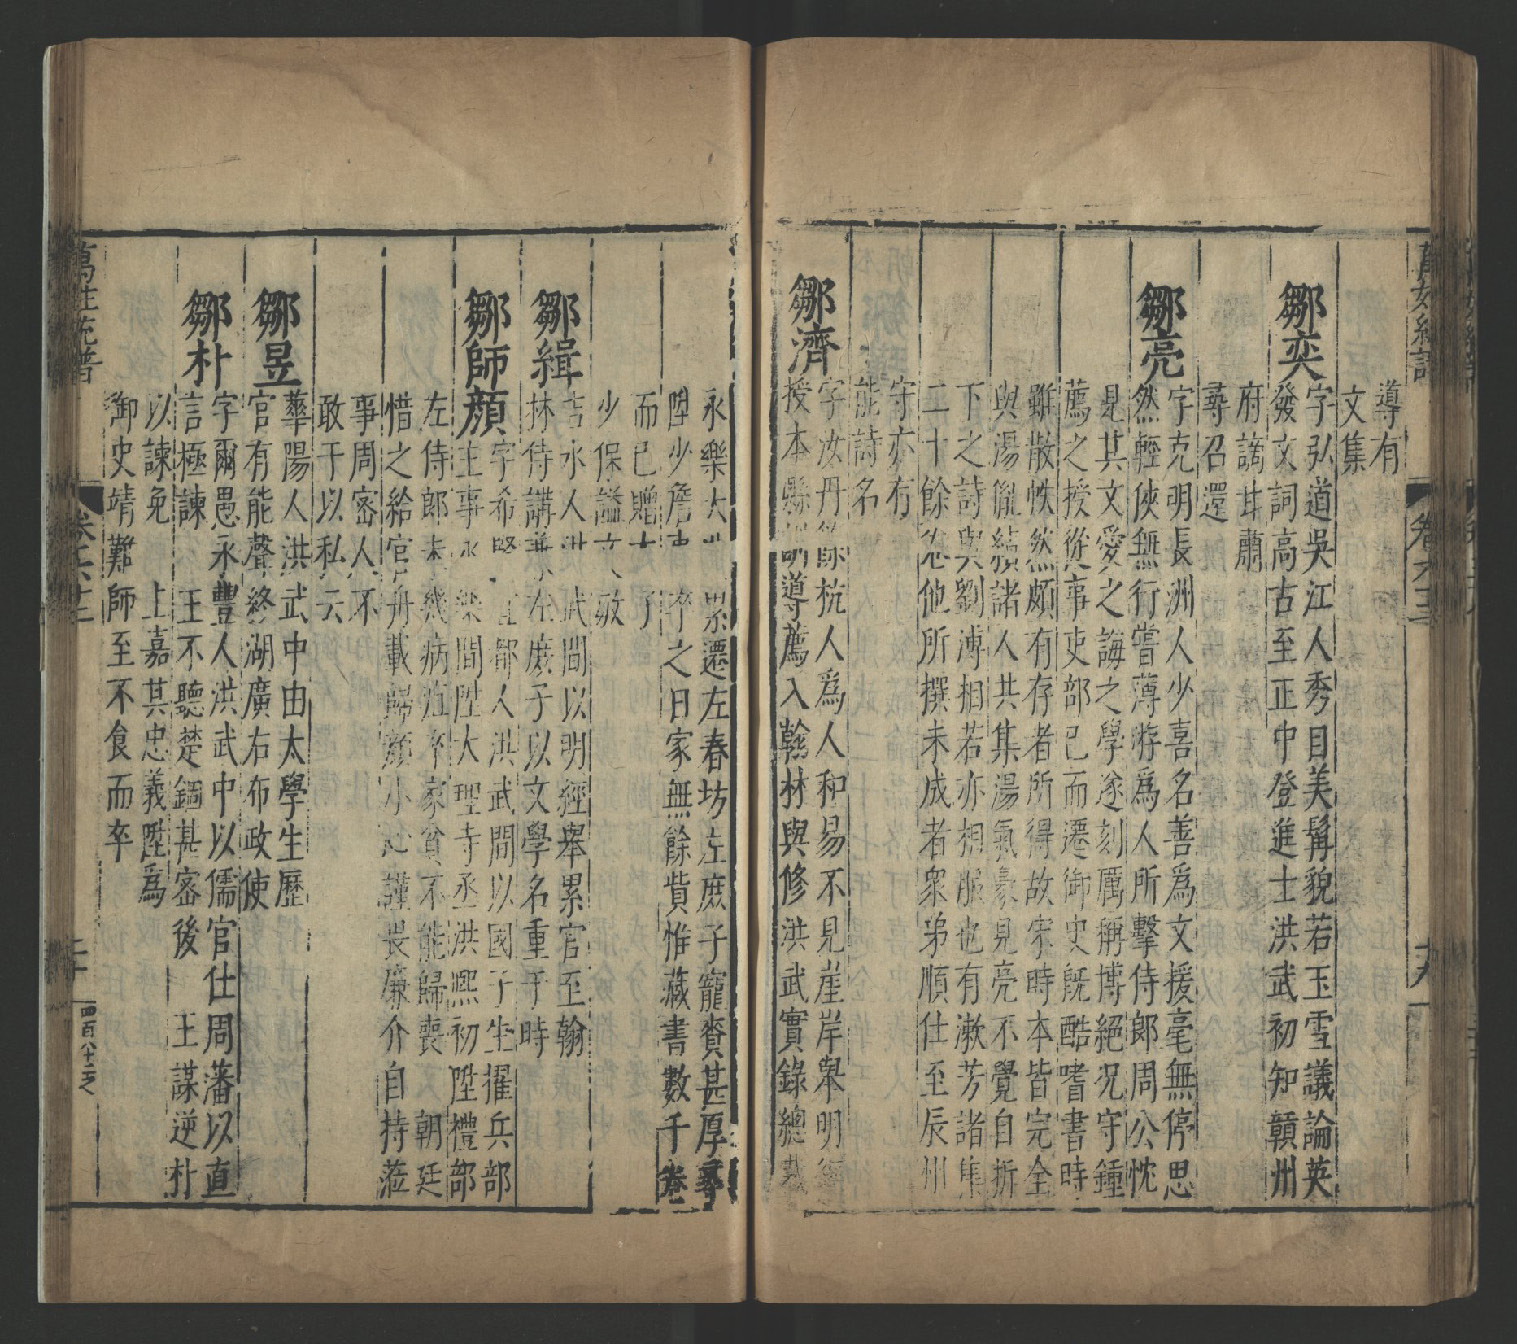 導有
文集
鄒奕
字弘道吳江人秀目美髯貌若玉雪議論英
發文詞高古至正中登進士洪武初知贛州
府謫甘肅
尋召還
鄒亮
字克明長洲人少喜名善爲文援毫無停思
然輕俠無行嘗薄游爲人所擊侍郎周公忱
見其文愛之誨之學遂刻厲稱博絕況守鍾
薦之授從事吏部已而遷御史既酷嗜書時
雖散帙然頗有存者所得故宋時本皆完全
與湯胤績諸人共集湯氣豪見亮不覺自折
下之詩與劉溥相若亦相服也有漱芳諸集
二十餘卷他所撰未成者衆弟順仕至辰州
守亦有
能詩名
鄒濟
字汝舟餘杭人爲人和易不見崖岸舉明經
授本縣訓導薦入翰林與修洪武實錄總裁
永樂大 累遷左春坊左庶子寵賚甚厚尋
陞少詹 卒之日家無餘貲惟藏書數千卷
而已贈 子
少保謚文敏
鄒緝
吉水人洪武間以明經舉累官至翰
林侍講兼左庶子以文學名重于時
鄒師顏
字希賢宜都人洪武間以國子生擢兵部
主事永樂間陞大理寺丞洪熙初陞禮部
左侍郎未幾病疽卒家貧不能歸喪 朝廷
惜之給官舟載歸顏小心謹畏廉介自持蒞
事周密人不
敢干以私云
鄒昱
華陽人洪武中由太學生歷
官有能聲終湖廣右布政使
鄒朴
字爾愚永豐人洪武中以儒官仕周藩以直
言極諫 王不聽楚錮甚密後 王謀逆朴
以諫免 上嘉其忠義陞爲
御史靖難師至不食而卒
萬姓統譜
二十
四百八十二